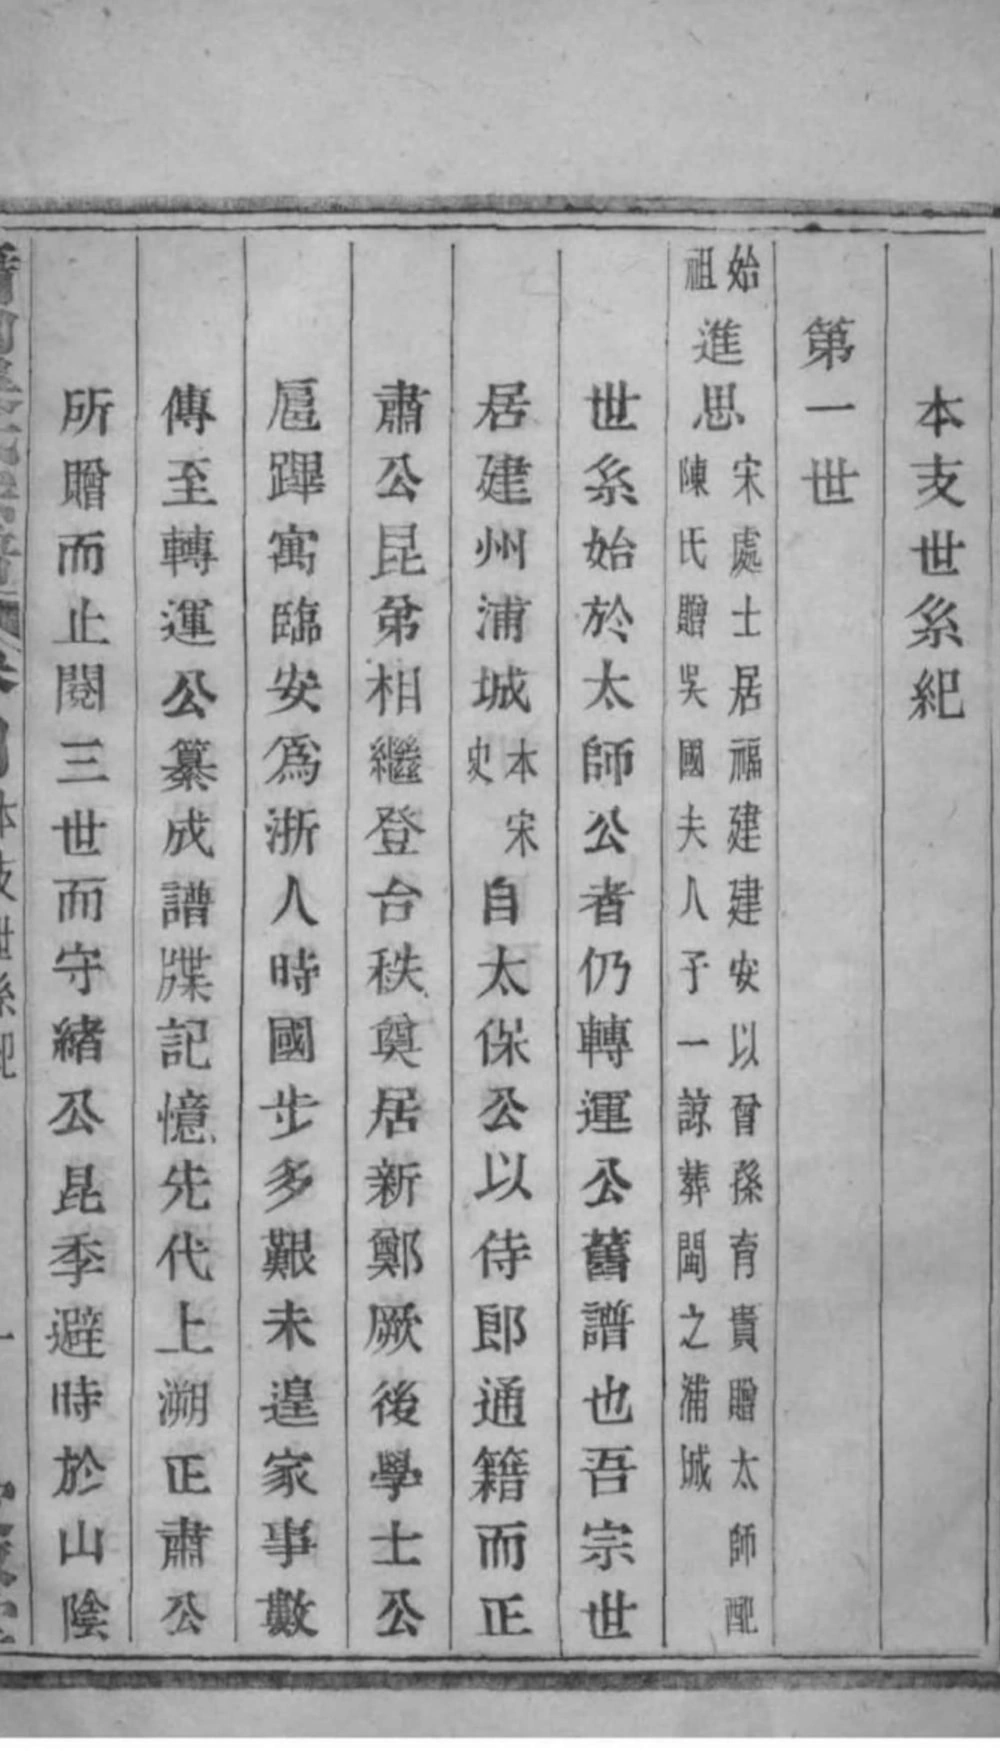 本支世系紀
第一世
始祖進思宋處士居福建建安以曾孫育貴贈太師配
陳氏贈吳國夫人子一諒葬閩之浦城
世系始於太師公者仍轉運公舊譜也吾宗世
居建州浦城本宋史自太保公以侍郎通籍而正
肅公昆弟相繼登台秩奠居新鄭厥後學士公
扈蹕寓臨安為浙人時國步多艱未遑家事數
傳至轉運公纂成譜牒記憶先代上溯正肅公
所贈而止閱三世而守緒公昆季避時於山陰